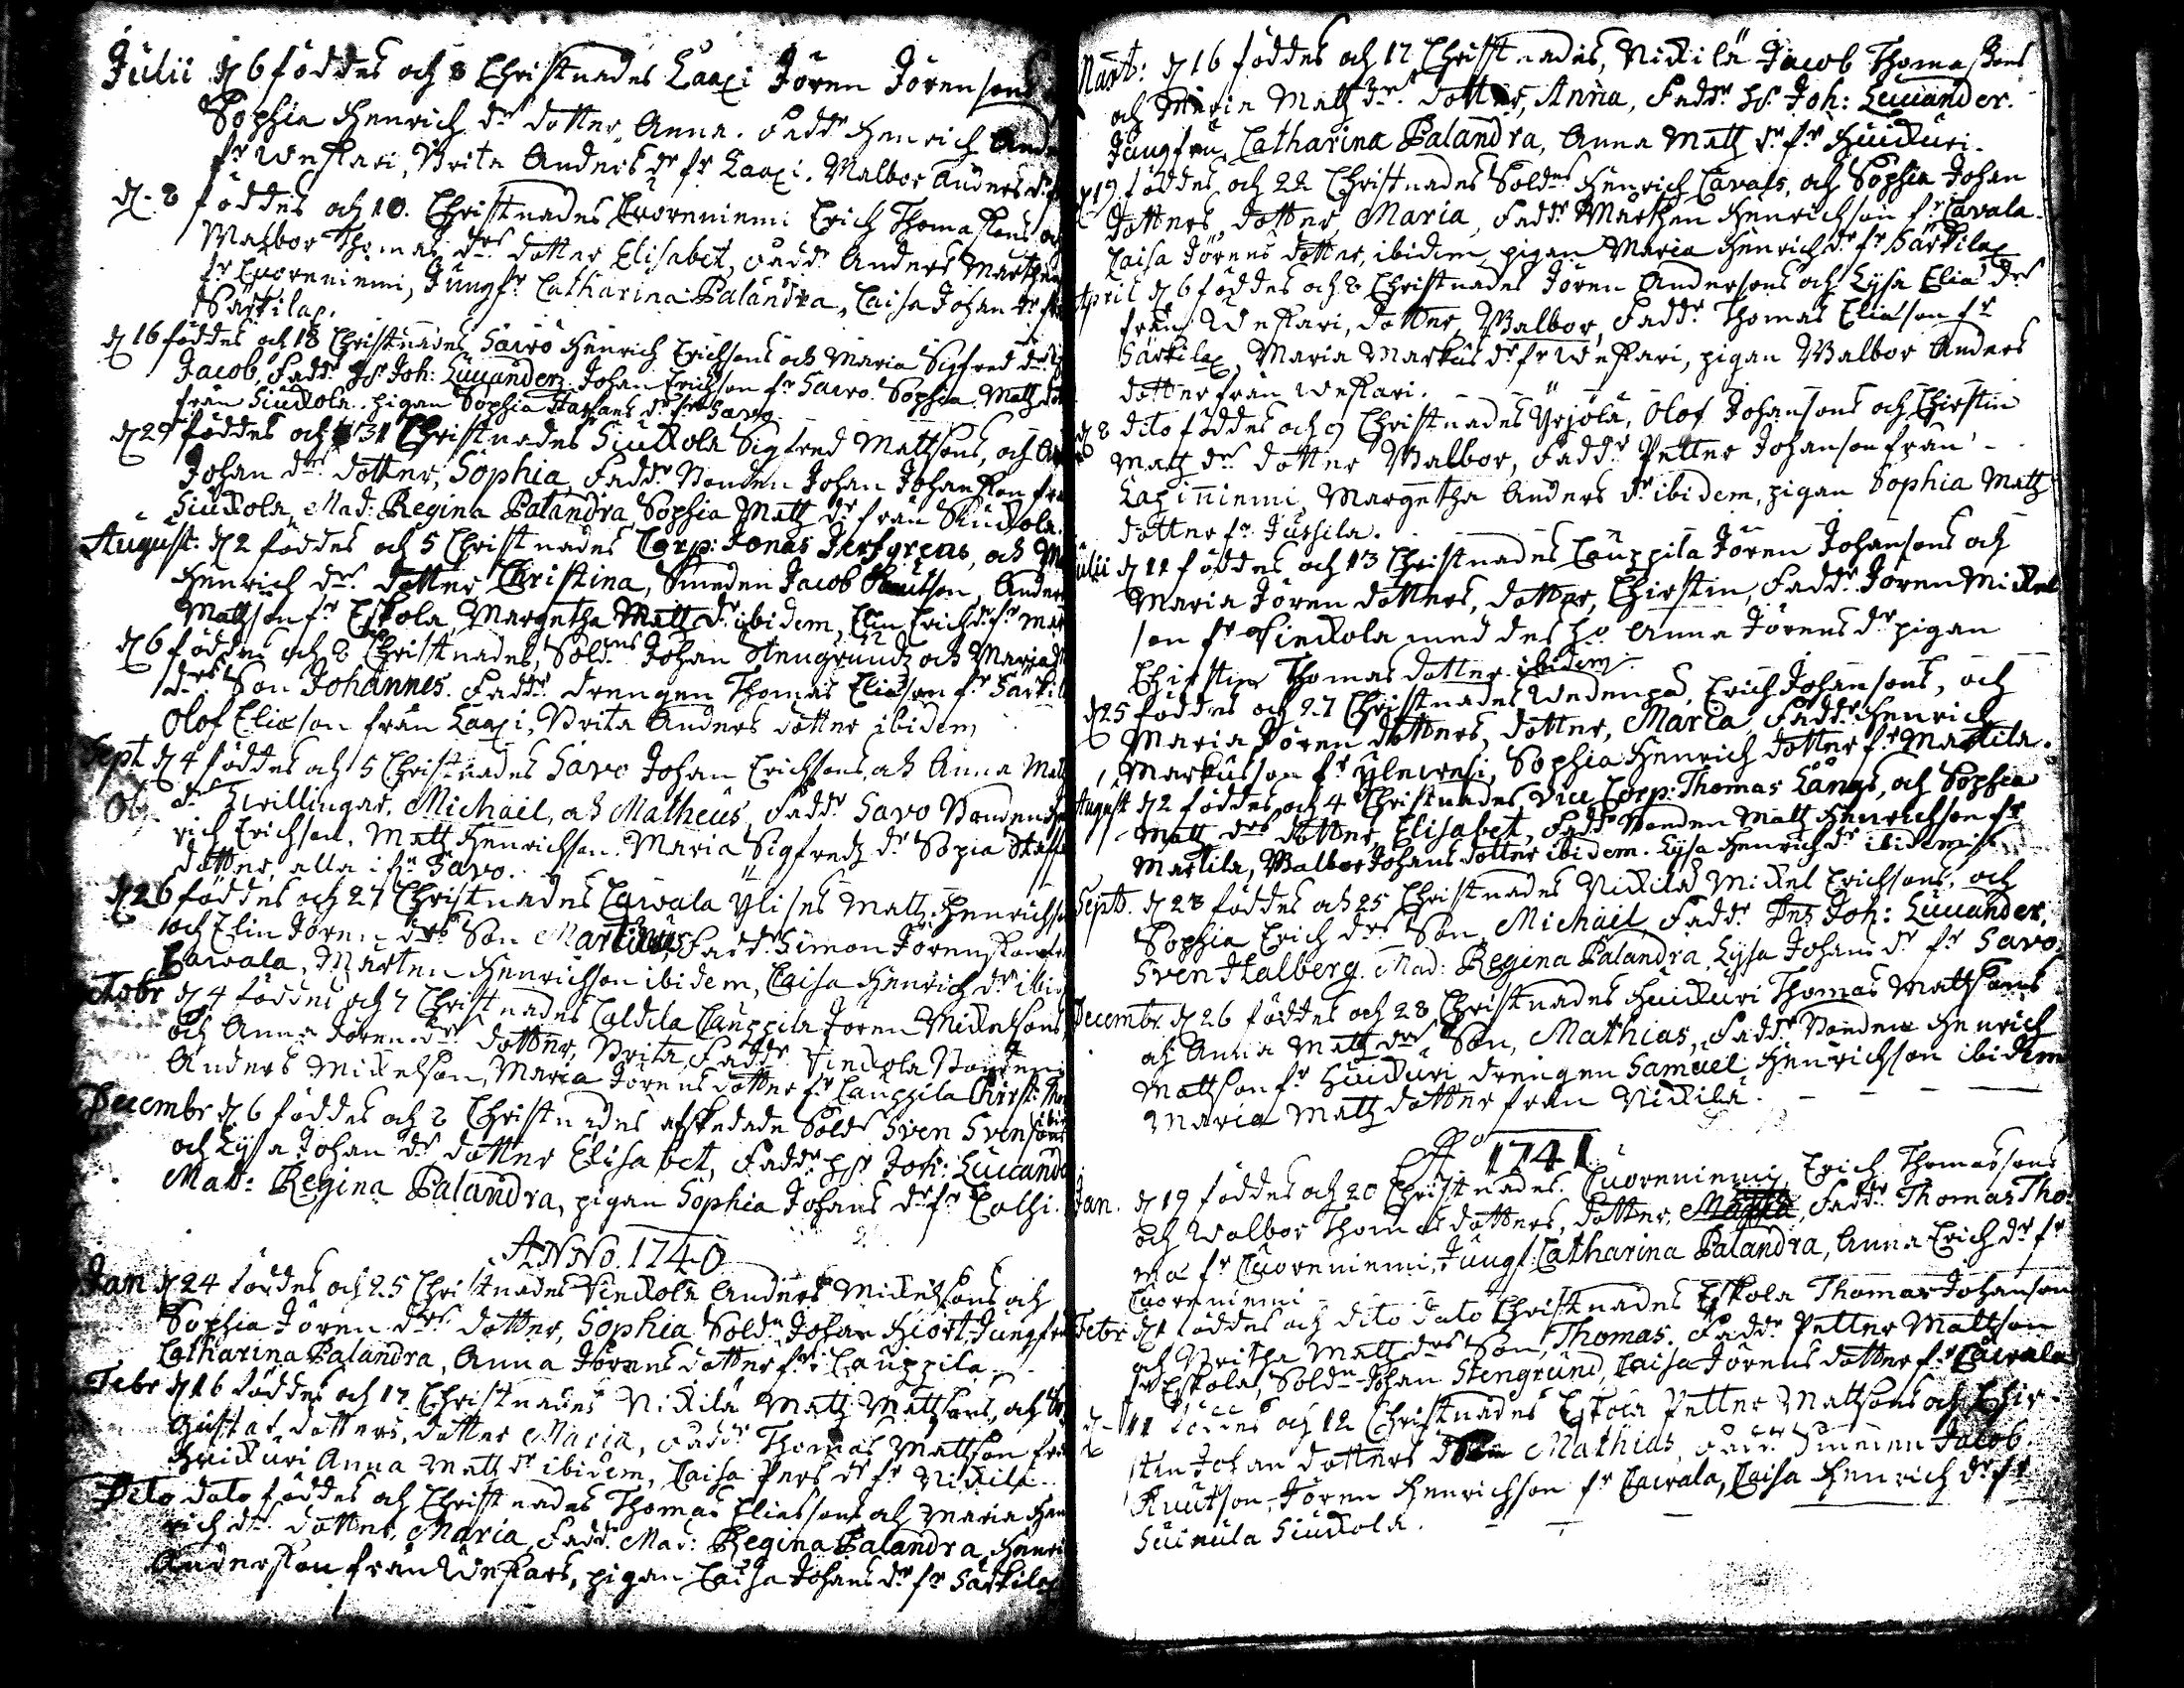 Julii d 6 föddes och 8 Christnades Laaxi Jören Jörensons
Sophia Henrich dr dotter Anna. Fadd. Henrich And
fr Weskari, Brita Anders dr fr Laaxi. Malbor Anders dr
d. 8 föddes och 10. Christnades Cuoreniemi Erich Thomasons och
Walbor Thomas drs dotter Elisabet, Fadd. Anders Marthen
fr Cuoreniemi, Jungfr Catharina Palandra, Caisa Johan dr fr
Särkilax.
d 16 föddes och 18 Christnades Sawo Henrich Erichsons och Maria Sigfred drs
Jacob, Fadd. Hr Joh: Lucander. Johan Erichson fr Sawo. Sophia Matz dot
från Siuckola. pigan Sophia Staffans dr fr Savo.
d 29 föddes och 31 Christnades Siuckola Sigfred Mattsons, och
Johan drs dotter, Sophia, Fadd. Bonden Johan Johanson fr
Siuckola, Mad: Regina Palandra, Sophia Matz dr från Siuckola.
August: d 2 föddes och 5 Christnades Corp: Jonas Jerfgrens, och M
Henrich drs dotter Christina, Smeden Jacob Knutson, Anders
Mattson fr Eskola, Margetha Matz dr ibidem, Elin Erich dr fr
d 6 föddes och 8 Christnades, Soldns Johan Stengrundz och Maria
drs Son Johannes. Fadd. drengen Thomas Eliason fr Särkil
Olof Eliason från Laaxi, Brita Anders dotter ibidem
Sept d 4 föddes och 5 Christnades Savo Johan Erichsons, och Anna Mat
dr Twillingar, Michail, och Matheus, Fadd. Savo Bonden
rich Erichson, Matz Henrichson. Maria Sigfredz dr Sopia Staff
dotter, alla i fr Savo.
d 26 föddes och 27 Christnades Cawala Ylises Matz Henrichs
och Elin Jören drs Son Martinus, Fadd. Simon Jörenson
Cawala, Mårten Henrichson ibidem, Caisa Henrich dr ibid
Octobr d 4 föddes och 7 Christnades Caldila Cauppila Jören Mickelsons
och Anna Jören drs dotter, Brita, Fadd. Vinckola Bonden
Anders Mickelson, Maria Jörens dotter fr Cauppila Christ: Tho
Decembr d 6 föddes och 8 Christnades afskedade Sold: Sven Svensons
och Lysa Johan dr dotter Elisabet, Fadd. Hr Joh: Lucande
Mad: Regina Palandra, pigan Sophia Johans dr fr Calhi.
ANNO. 1740
Jan d 24 föddes och 25 Christnades Vinckola Anders Mickelsons och
Sophia Jören drs dotter, Sophia Soldn Johan Hiort, Jungfru
Catharina Palandra, Anna Jörens dotter fr Cauppila
Febr d 16 föddes och 17 Christnades Nickilä Matz Mattsons, och
Gustaf dotters, dotter Maria, Fadd. Thomas Mattson frå
Huickuri Anna Matz dr ibidem, Caisa Pers dr fr Nickilä
Dito dato föddes och Christnades Thomas Eliasons och Maria Hen
rich drs dotter, Maria, Fadd. Mad: Regina Palandra, Henri
Anderson från Weskars, pigan Caisa Johans dr fr Särkilax
Mart: d 16 föddes och 17 Christnades, Nickilä Jacob Thomasons
och Maria Matz drs dotter, Anna, Fadd. Hr Joh: Lucander.
Jungfru Catharina Palandra, Anna Matz dr fr Huickuri.
d 19 föddes, och 22 Christnades Soldns Henrich Cavals, och Sophia Johan
dotters, dotter, Maria, Fadd. Mårthen Henrichson fr Cavala.
Caisa Jörens dotter, ibidem, pigan Maria Henrich dr fr Särkilax
April d 6 föddes och 8 Christnades Jören Andersons och Lysa Elia drs
från Weskari, dotter, Walbor, Fadd. Thomas Eliason fr
Särkilax, Maria Markus dr fr Weskari, pigan Walbor Anders
dotter från Weskari.
d 8 dito föddes och 9 Christnades Yrjölä, Olof Johansons och Chirstin
Matz drs dotter Walbor, Fadd. Petter Johanson från
Laxiniemi, Margetha Anders dr ibidem, pigan Sophia Matz
dotter fr Jussila.
Julii d 11 föddes och 13 Christnades Cauppila Jören Johansons och
Maria Jören dotters, dotter, Chirstin, Fadd. Jören Mickel
son fr Vinckola med des ho Anna Jörens dr pigan
Chirstin Thomas dotter ibidem
d 25 föddes och 27 Christnades Wedenpä, Erich Johansons, och
Maria Jören dotters, dotter, Maria, Fadd. Henrich
Markusson fr Ylewesi, Sophia Henrich dotter fr Martila.
August d 2 föddes och 4 Christnades, Vice Corp: Thomas Långs, och Sophia
Matz drs dotter, Elisabet, Fadd. Bonden Matz Henrichson fr
Martila, Walbor Johans dotter ibidem. Lysa Henrich dr ibidem
Septb. d 23 föddes och 25 Christnades Nickilä Mickel Erichsons, och
Sophia Erich drs Son, Michail, Fadd. Joh: Lucander.
Sven Stalberg. Mad: Regina Palandra, Lysa Johans dr fr Savo.
Decembr. d 26 föddes och 28 Christnades Huickuri Thomas Mattsons
och Anna Matz drs Son, Mathias, Fadd. Bonden Henrich
Mattson fr Huickuri drengen Samuel Henrichson ibidem
Maria Matz dotter från Nickilä.
Ao 1741
Jan. d 19 föddes och 20 Christnades. Cuoreniemi Erich Thomassons
och Walbor Thomas dotters, dotter, Fadd. Thomas Tho
ma fr Cuoreniemi, Jungf: Catharina Palandra, Anna Erich dr fr
Cuoreniemi
Febr d 1 föddes och dito dato Christnades Eskola Thomas Johanson
och Britha Matz drs Son, Thomas. Fadd. Petter Mattson
fr Eskola, Soldn Johan Stengrund, Caisa Jörens dotter fr Cawala
d 11 föddes och 12 Christnades Eskola Petter Mattsons och Chir-
stin Johan dotters Son Mathias, Fadd. Smeden Jacob
Knutson, Jören Henrichson fr Cawala, Caisa Henrich dr fr
Siuckola.